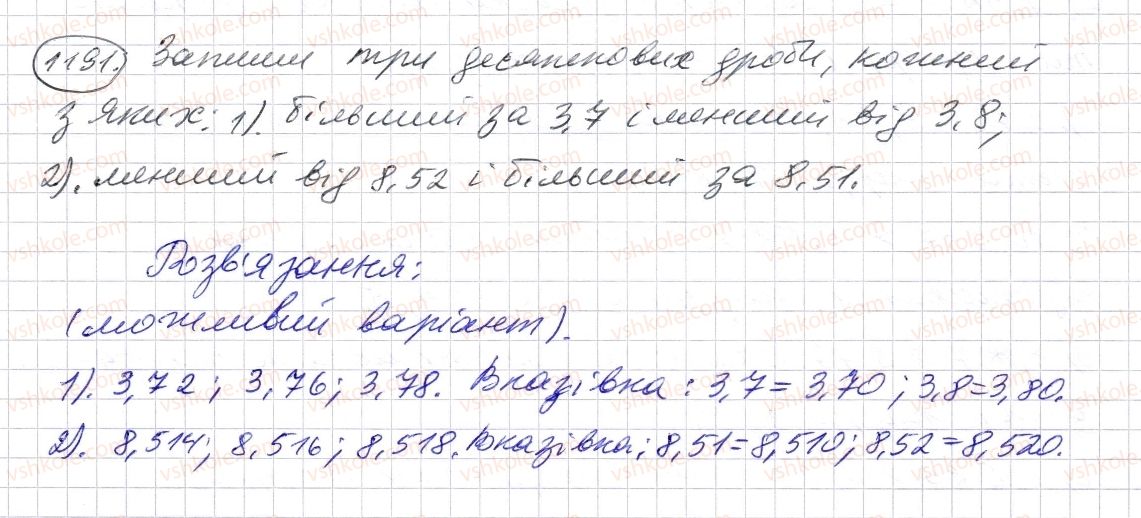 1191. Запиши три десяткових дроби, кожний
з яких: 1). більший за 3,7 і менший від 3,8;
2). менший від 8,52 і більший за 8,51.
Розв'язання:
(можливий варіант).
1). 3,72; 3,76; 3,78. Вказівка: 3,7=3,70; 3,8=3,80.
2). 8,514; 8,516; 8,518. Вказівка: 8,51=8,510; 8,52=8,520.